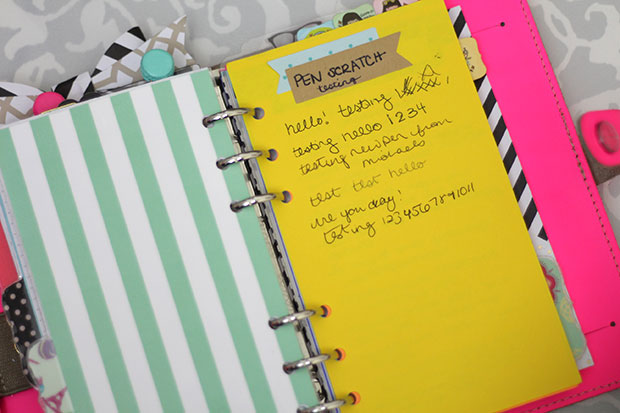 PEN SCRATCH
testing
hello! testing
testing hello 1234
testing new pen from
michaels
test test hello
are you okay!
testing 1234567891011